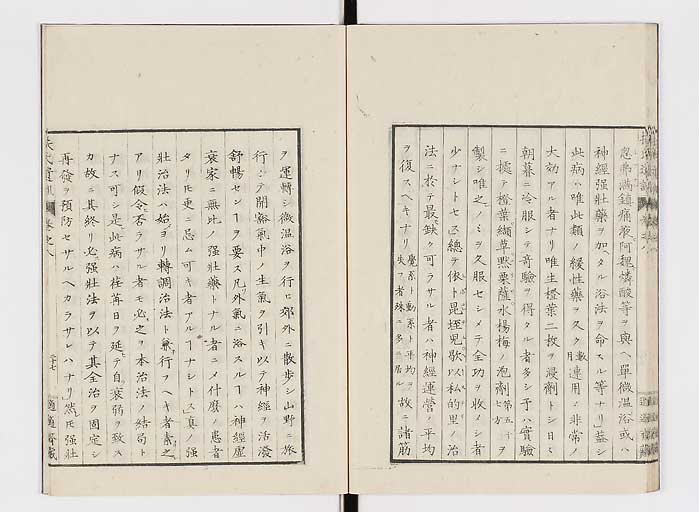 忽弗満鎮痛液阿魏燐酸等ヲ與ヘ單微温浴或ハ
神經强壯藥ヲ加ヘタル浴法ヲ命スル等ナリ葢シ
此病ハ唯此類ノ緩性藥ヲ久ク數月連用シ非常ノ
大効アル者ナリ唯生橙葉二枚ヲ浸劑トシ日ニ
朝暮ニ冷服シテ奇驗ヲ得タル者多シ予ハ實驗
ニ據テ橙葉纈草㸃栗薩水楊梅ノ泡劑第五十七方ヲ
製シ唯之ノミヲ久服セシメテ全功ヲ收メシ者
少ナシトセス總テ依ト昆垤児歇以私的里ノ治
法ニ於テ最缺ク可ラサル者ハ神經運營ノ平均
ヲ復スヘキナリ覺系ト動系ト平均ヲ失フ者殊ニ多ニ居ル故ニ諸筋
ヲ運轉シ微温浴ヲ行ヒ郊外ニ散歩シ山野ニ旅
行シテ開豁氣中ノ生氣ヲ引キ以テ神經ヲ活潑
舒暢セシヿヲ要ス凡外氣ニ浴スルーハ神經虛
衰家ニ無比ノ强壯藥トナル者ニメ什麼ノ患者
タリ𪜈更ニ忌ム可キ者アルーナシトス真ノ强
壯治法ハ始ヨリ轉調治法ト兼行フヘキ者素之
アリ假令否ラサル者モ必之ヲ本治法ノ結局ト
ナス可シ是此病ハ荏苒日ヲ延テ自衰弱ヲ致ス
カ故ニ其終リ必强壯法ヲ以テ其全治ヲ固定シ
再發ヲ預防セサルヘカラサレハナリ然𪜈强壯
適適齋藏